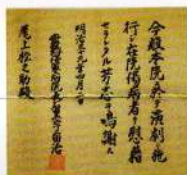 今般本院ニ於テ演劇ヲ施
行シ在院傷病者ヲ慰藉
セラレタル芳志ヲ鳴謝ス
明治三十九年四月二日
尾上松之助殿